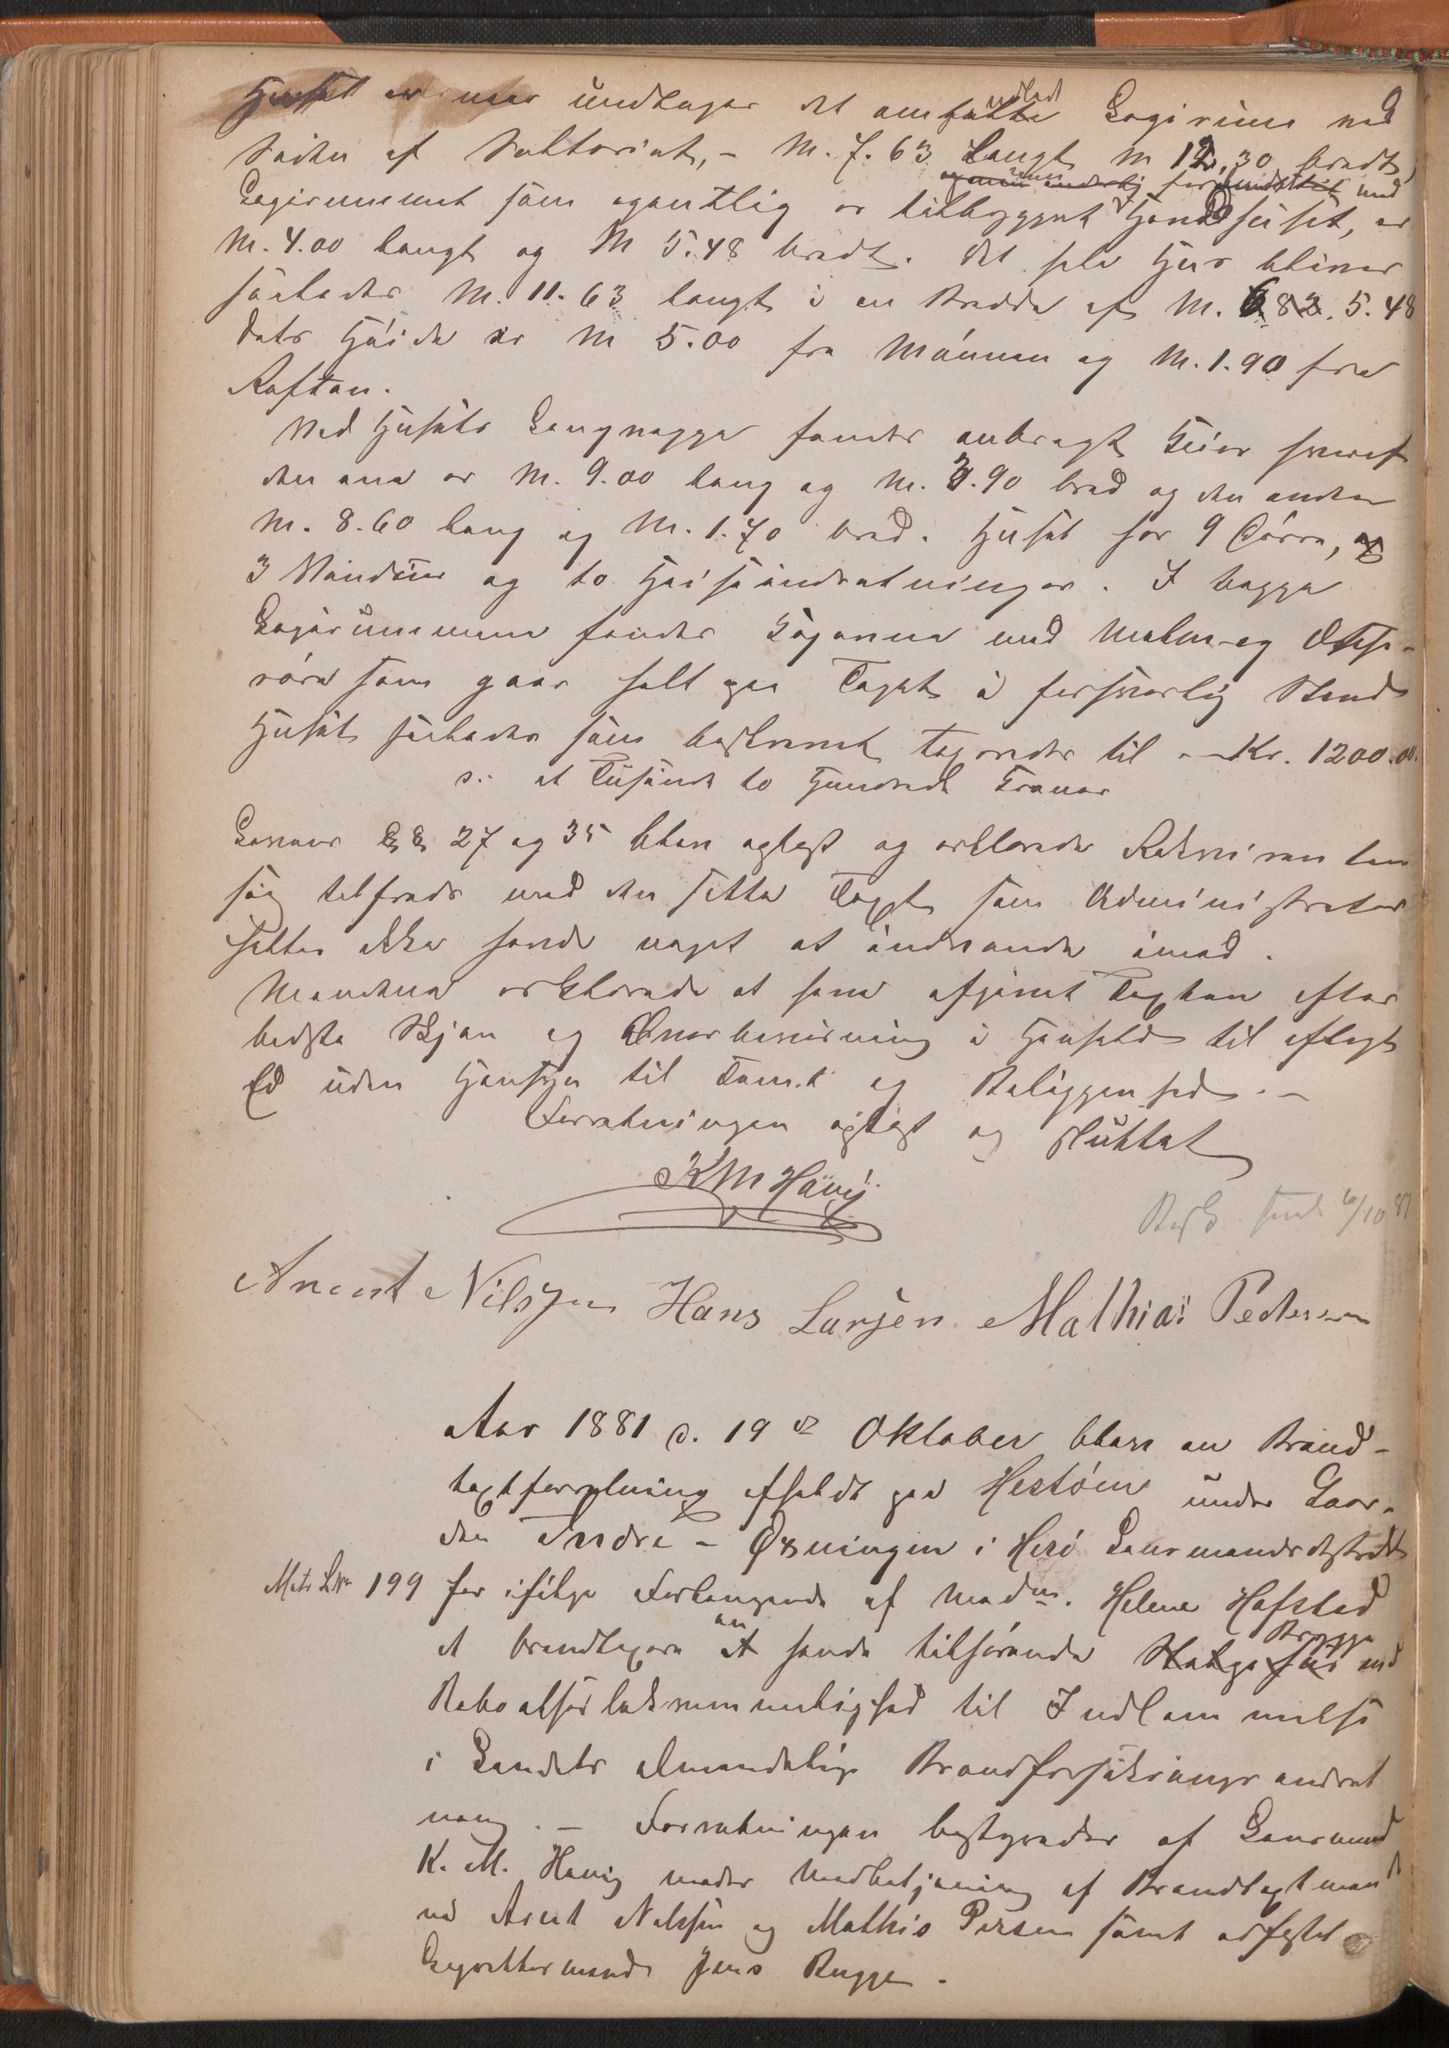 Huset er naar undtages det omtalte udladt Logirum ved
Siden af Salteriet, – M. 7.63 langt M 12.30 bredt,
Logirummet som egentlig er tilbygget Hovedhuset, er
M. 4.00 langt og M 5.48 bredt. Det hele Hus bliver
saaledes M. 11.63 langt i en Bredde af M. 6 82. 5.48
dets Høide er M 5.00 fra Mønnen og M. 1.90 fra
Raften.
Ved Husets Langvægge findes anbragt Kaier hvoraf
den ene er M. 9.00 lang og M. 3.90 bred og den anden
M. 8.60 lang og M. 1.70 bred. Huset har 9 Dørre, og
3 Vinduer og to Heiseindretninger. I begge
Logirummene findes Kogeovne med Malm- og
røre som gaar helt gjen Taget i forsvarlig Stand
Huset saaledes som beskrevet taxeredes til – Kr. 1200.00.
s: et Tusinde to Hundrede Kroner
Lovens §§ 27 og 35 blev oplæst og erklærede Rekvirenten
sig tilfreds med den satte Taxt som Administrator
heller ikke havde noget at indvende imod.
Mændene erklærede at have afgivet Taxten efter
bedste Skjøn og Overbevisning i Henhold til aflagt
Ed uden Hensyn til Tomt og Beliggenhed. –
Forretningen oplæst og sluttet
K M Hävig
Besk. sendt 6/10 81
Arent Nilssen Hans Larsen Mathias Pedersen
Aar 1881 d. 19de Oktober blev en Brand-
taxtforretning afholdt paa Hestöen under Gaar-
den Indre-Øksningen i Herö Lensmandsdistrikt
Matr. L No 199 for ifølge Forlangende af Madm. Helene Hafstad
at brandtaxere en et hende tilhørende Stolpehus Brygge med
Beboelsesbekvemmelighed til Indlemmelse
i Landets almindelige Brandforsikringsindret
ning. – Forretningen bestyredes af Lensmand
K. M. Havig under Medbetjening af Brandtaxtmænd
ne Arent Nilssen og Mathis Persen samt edfæstet
Lagrettesmand Jens Bugge.